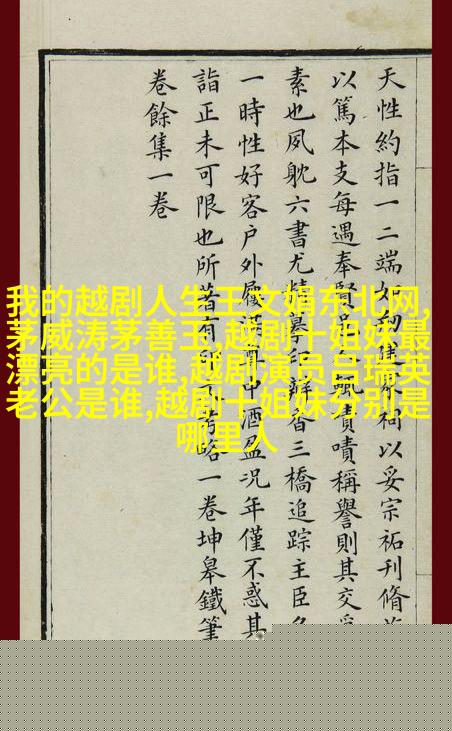 天性約指一二端如祠以妥宗祏刊脩
以篤本支每遇奉賢嘖嘖稱譽則其交
素也夙躭六書尤精摹印香三橋追踪主臣
一時性好客戶外屨中酒盈况年僅不惑其
詣正未可限也所著有略一卷坤皋鐵筆
卷餘集一卷
我的越剧人生王文娟东北网,
茅威涛茅善玉,越剧十姐妹最
漂亮的是谁,越剧演员吕瑞英
老公是谁,越剧十姐妹分别是
哪里人